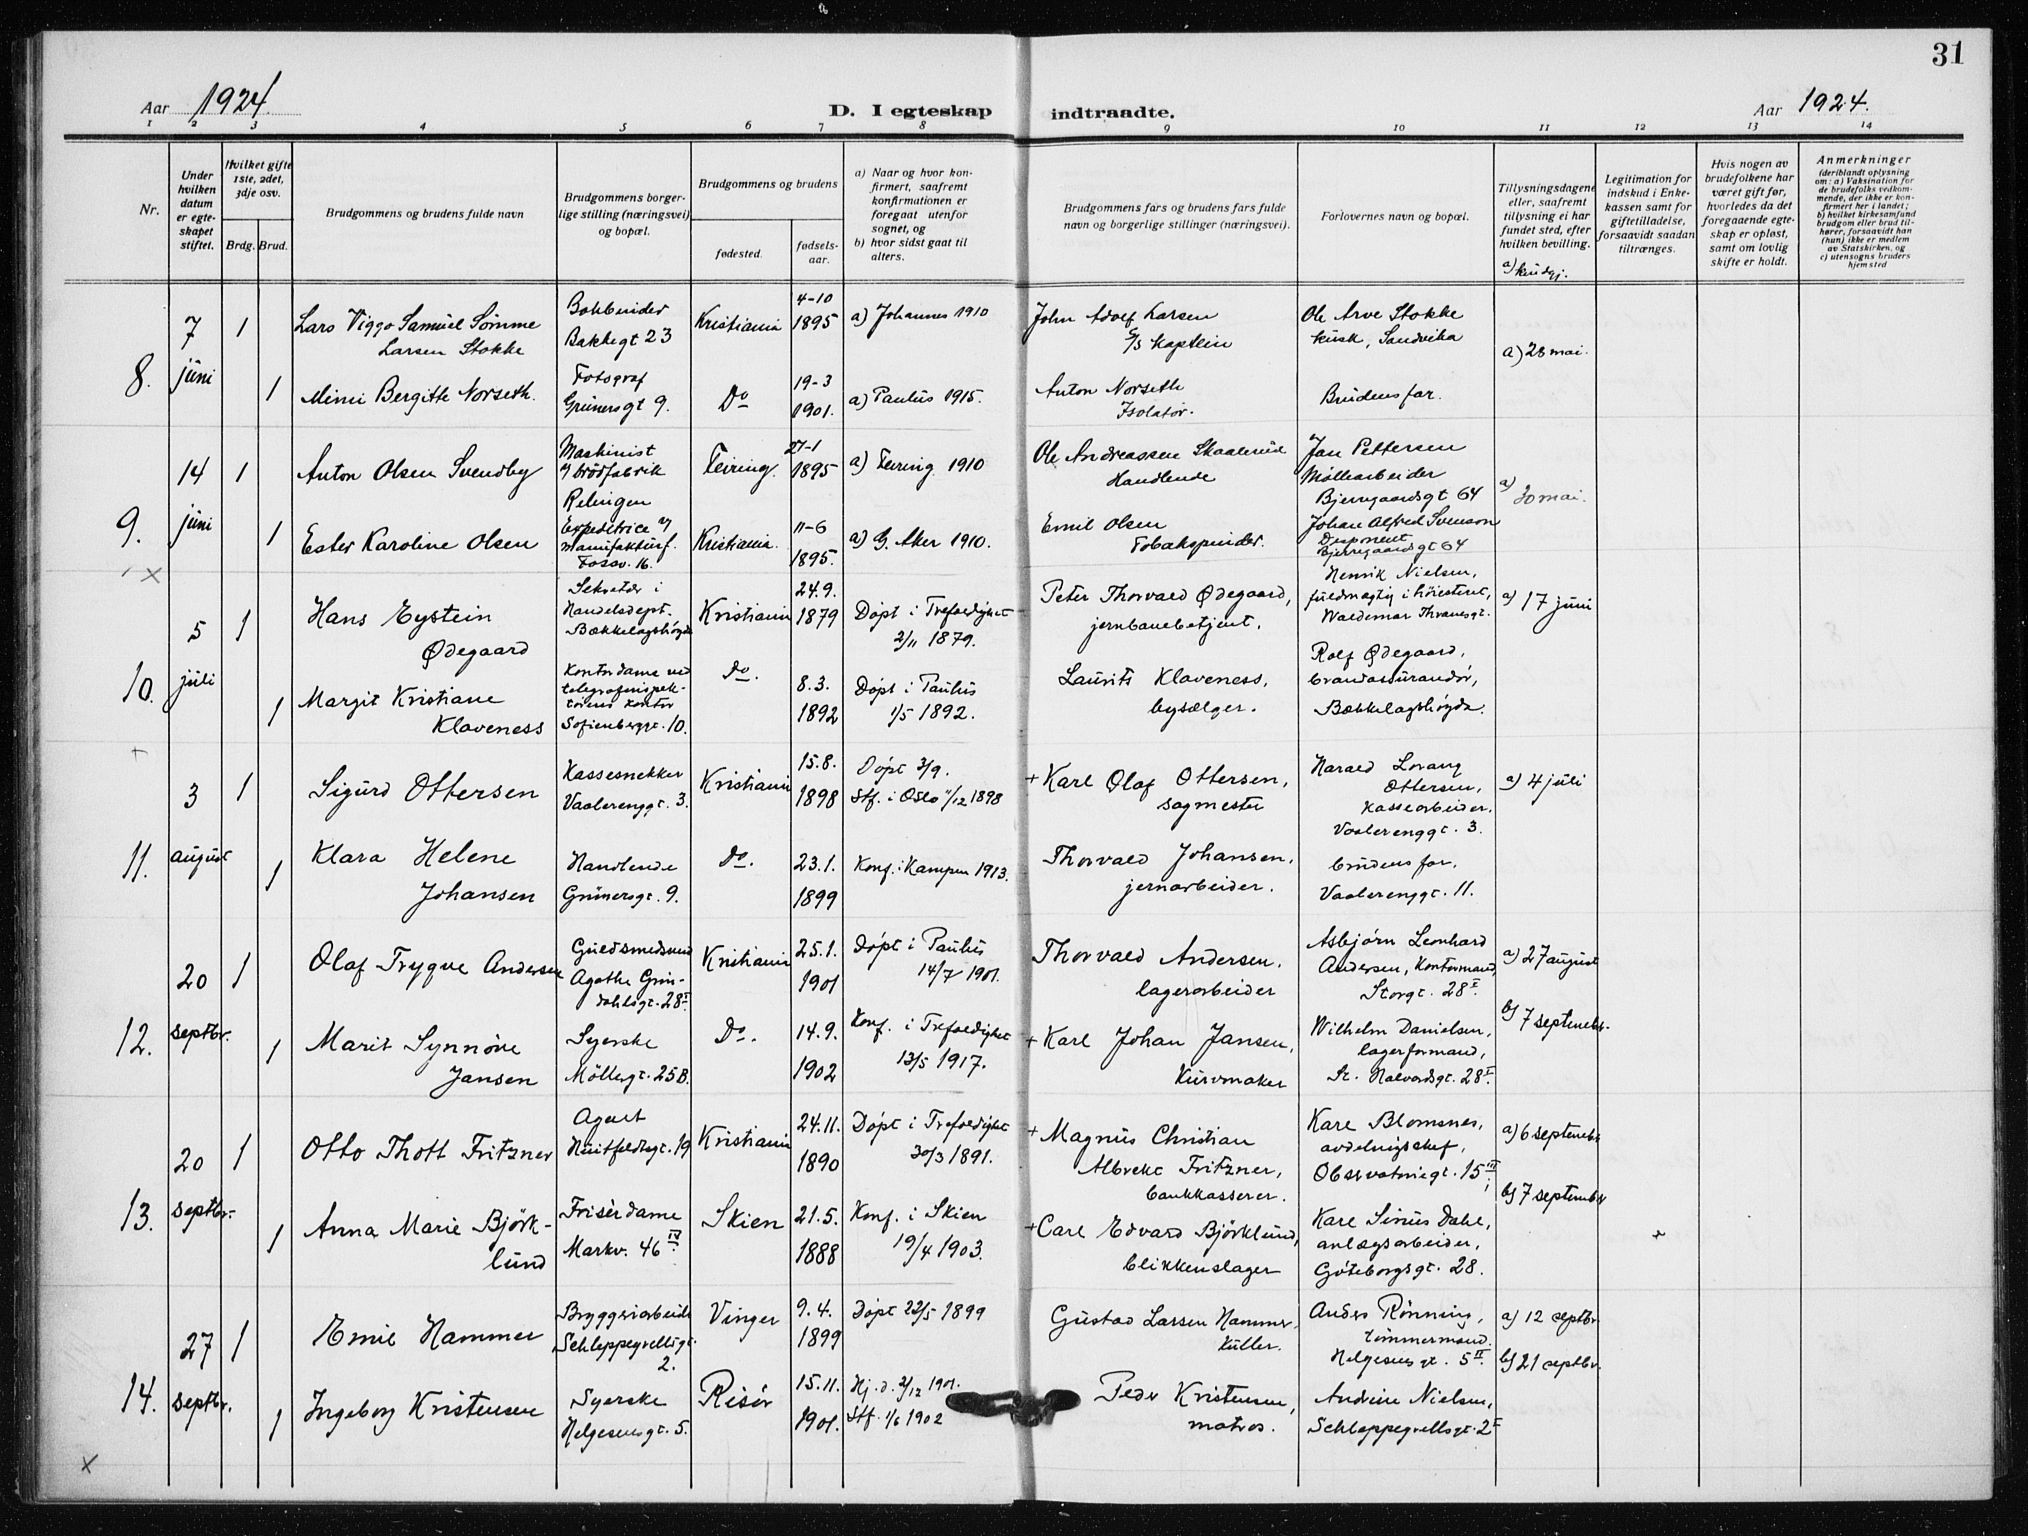 31
Aar 1924.
D. I egteskap indtraadte.
Aar 1924.
1 2 3 4 5 6 7 8 9 10 11 12 13 14
Nr.
Under hvilken datum er egteskapet stiftet.
Hvilket gifte 1ste, 2det, 3dje osv.
Brdg. Brud.
Brudgommens og brudens fulde navn
Brudgommens borgerlige stilling (næringsvei) og bopæl.
Brudgommens og brudens
fødested.
fødselsaar.
a) Naar og hvor konfirmert, saafremt konfirmationen er foregaat utenfor sognet, og
b) hvor sidst gaat til alters.
Brudgommens fars og brudens fars fulde navn og borgerlige stillinger (næringsvei).
Forlovernes navn og bopæl.
Tillysningsdagene eller, saafremt tillysning ei har fundet sted, efter hvilken bevilling.
Legitimation for indskud i Enkekassen samt for giftetilladelse, forsaavidt saadan tiltrænges.
Hvis nogen av brudefolkene har været gift før, hvorledes da det foregaaende egteskap er opløst, samt om lovlig skifte er holdt.
Anmerkninger
(deriblandt oplysning om: a) Vaksination for de brudefolks vedkommende, der ikke er konfirmert her i landet; b) hvilket kirkesamfund brudgom eller brud tilhører, forsaavidt han (hun) ikke er medlem av Statskirken, og c) utensogns bruders hjemsted
8.
7 juni
1
Lars Viggo Samuel Sømme Larsen Stokke
Bokbinder Bakkegt 23
Kristiania
4-10 1895
a) Johannes 1910
John Adolf Larsen
kaptein
Ole Arve Stokke
kusk, Sandvika
a) 28 mai.
1
Mimi Bergitte Norseth.
Fotograf
Grünersgt 9.
Do
19-3 1901.
a) Paulus 1915.
Anton Norseth
Isolatør.
Brudens far.
9.
14 juni
1
Anton Olsen Svendby
Maskinist v/ brødfabrik
Relingen
Feiring.
27-1 1895
a) Feiring 1910
Ole Andreassen
Handlende
Jan Pettersen
Møllearbeider
Bjerregaardsgt 64
a) 30 mai.
1
Ester Karoline Olsen
Expeditrice v/ manufakturf.
Fossv. 16.
Kristiania.
11-6 1895.
a) G. Aker 1910.
Emil Olsen
Tobakspinder.
Johan Alfred Svenson
Disponent
Bjerregaardsgt 64
10.
5 juli
1
Hans Eystein
Ødegaard
Sekretær i Handelsdept.
Bækkelagshøgda
Kristiania
24.9. 1879
Døpt i Trefoldighet
2/11 1879.
Peter Thorvald Ødegaard,
jernbanebetjent.
Henrik Nielsen,
fuldmægtig i høiesteret,
Waldemar Thranesgt.
a) 17 juni
1
Margit Kristiane
Klaveness
Kontordame ved telegrafinspektørens kontor
Sofienberggt. 10.
Do.
8.3. 1892
Døpt i Paulus
1/5 1892.
Laurits Klaveness,
bysælger.
Rolf Ødegaard,
brandassurandør,
Bækkelagshøgda.
11.
3 august
1
Sigurd Ottersen
Kassesnekker
Vaalerenggt. 3.
Kristiania
15.8. 1898
Døpt 3/9.
Stf. i Oslo 11/12 1898
+ Karl Olaf Ottersen,
sagmester
Harald Lorang
Ottersen,
kassearbeider.
Vaalerenggt. 3.
a) 4 juli
1
Klara Helene
Johansen
Handlende
Grünersgt. 9.
Do.
23.1. 1899
Konf. i Kampen 1913.
Thorvald Johansen,
jernarbeider.
brudens far.
Vaalerenggt. 11.
12.
20 septbr.
1
Olaf Trygve Andersen
Guldsmedsvend
Agathe Grøndahlsgt. 28 I
Kristiania
25.1. 1901
Døpt i Paulus
14/7 1901.
Thorvald Andersen.
lagerarbeider
Asbjørn Leonhard
Andersen, Kontormand,
Storgt. 28 I.
a) 27 august
b) 7 septembr.
1
Marit Synnøve
Jansen
Syerske
Møllergt. 25B.
Do.
14.9. 1902
Konf. i Trefoldighet
13/5 1917.
+ Karl Johan Jansen,
Kurvmaker
Wilhelm Danielsen,
lagerformand,
St. Halvardsgt. 28 I.
13.
20 septbr.
1
Otto Thott Fritzner
Agent
Huitfeldtsgt. 19
Kristiania
24.11. 1890
Døpt i Trefoldighet
30/3 1891.
+ Magnus Christian
Albrekt Fritzner,
bankkasserer.
Karl Blomsnes,
avdelingschef,
Observatoriegt. 15 III,
a) 6 septembr.
b) 7 septembr
1
Anna Marie Björklund
Frisérdame
Markv. 46 IV.
Skien
21.5. 1888
Konf. i Skien
19/4 1903.
+ Carl Edvard Björklund,
blikkenslager
Karl Sinus Dahl,
anlægsarbeider,
Göteborgsgt. 28.
14.
27 septbr.
1
Emil Hammer
Bryggeriarbeider
Schleppegrellsgt. 2.
Vinger
9.4. 1899
Døpt 22/5 1899
Gustav Larsen Hammer,
Anders Rönning,
tømmermand.
Helgesensgt. 5 II.
a) 12 septbr
b) 21 septbr.
1
Ingeborg Kristensen
Syerske
Helgesensgt. 5.
Risör
15.11. 1901.
Hj.d. 2/12 1901.
Stf. 1/6 1902
Peder Kristensen,
matros.
Andrine Nielsen,
Schleppegrellsgt. 2 I